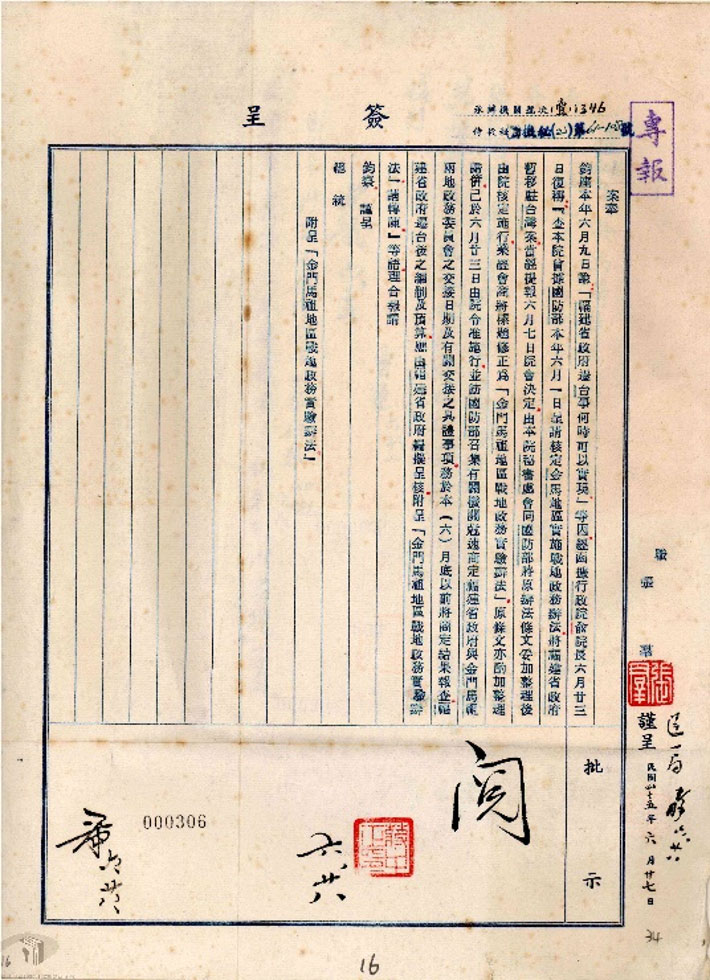 簽呈
專報
案奉
鈞座本年六月九日第「福建省政府遷台事何時可以實現」等因經函據行政院俞院長六月廿三
日復稱「查本院前據國防部本年六月一日呈請核定金馬地區實施戰地政務辦法將福建省政府
暫移駐台灣案當經提報六月七日院會決定由本院秘書處會同國防部將原辦法條文妥加整理後
由院核定施行案經會商將標題修正為「金門馬祖地區戰地政務實驗辦法」原條文亦酌加整理
請併已於六月廿三日由院令准施行並飭國防部召集有關機關迅速商定福建省政府與金門馬祖
兩地政務委員會之交接日期及有關交接之具體事項務於本(六)月底以前將商定結果報查福
建省政府遷台後之編制及預算應由福建省政府編擬呈核附呈「金門馬祖地區戰地政務實驗辦
法」請轉陳」等語理合報請
鈞察 謹呈
總統
附呈「金門馬祖地區戰地政務實驗辦法」
職 張 羣
謹呈 民國四十五年六月廿七日
批示
閱
六、廿八
000306
34
16